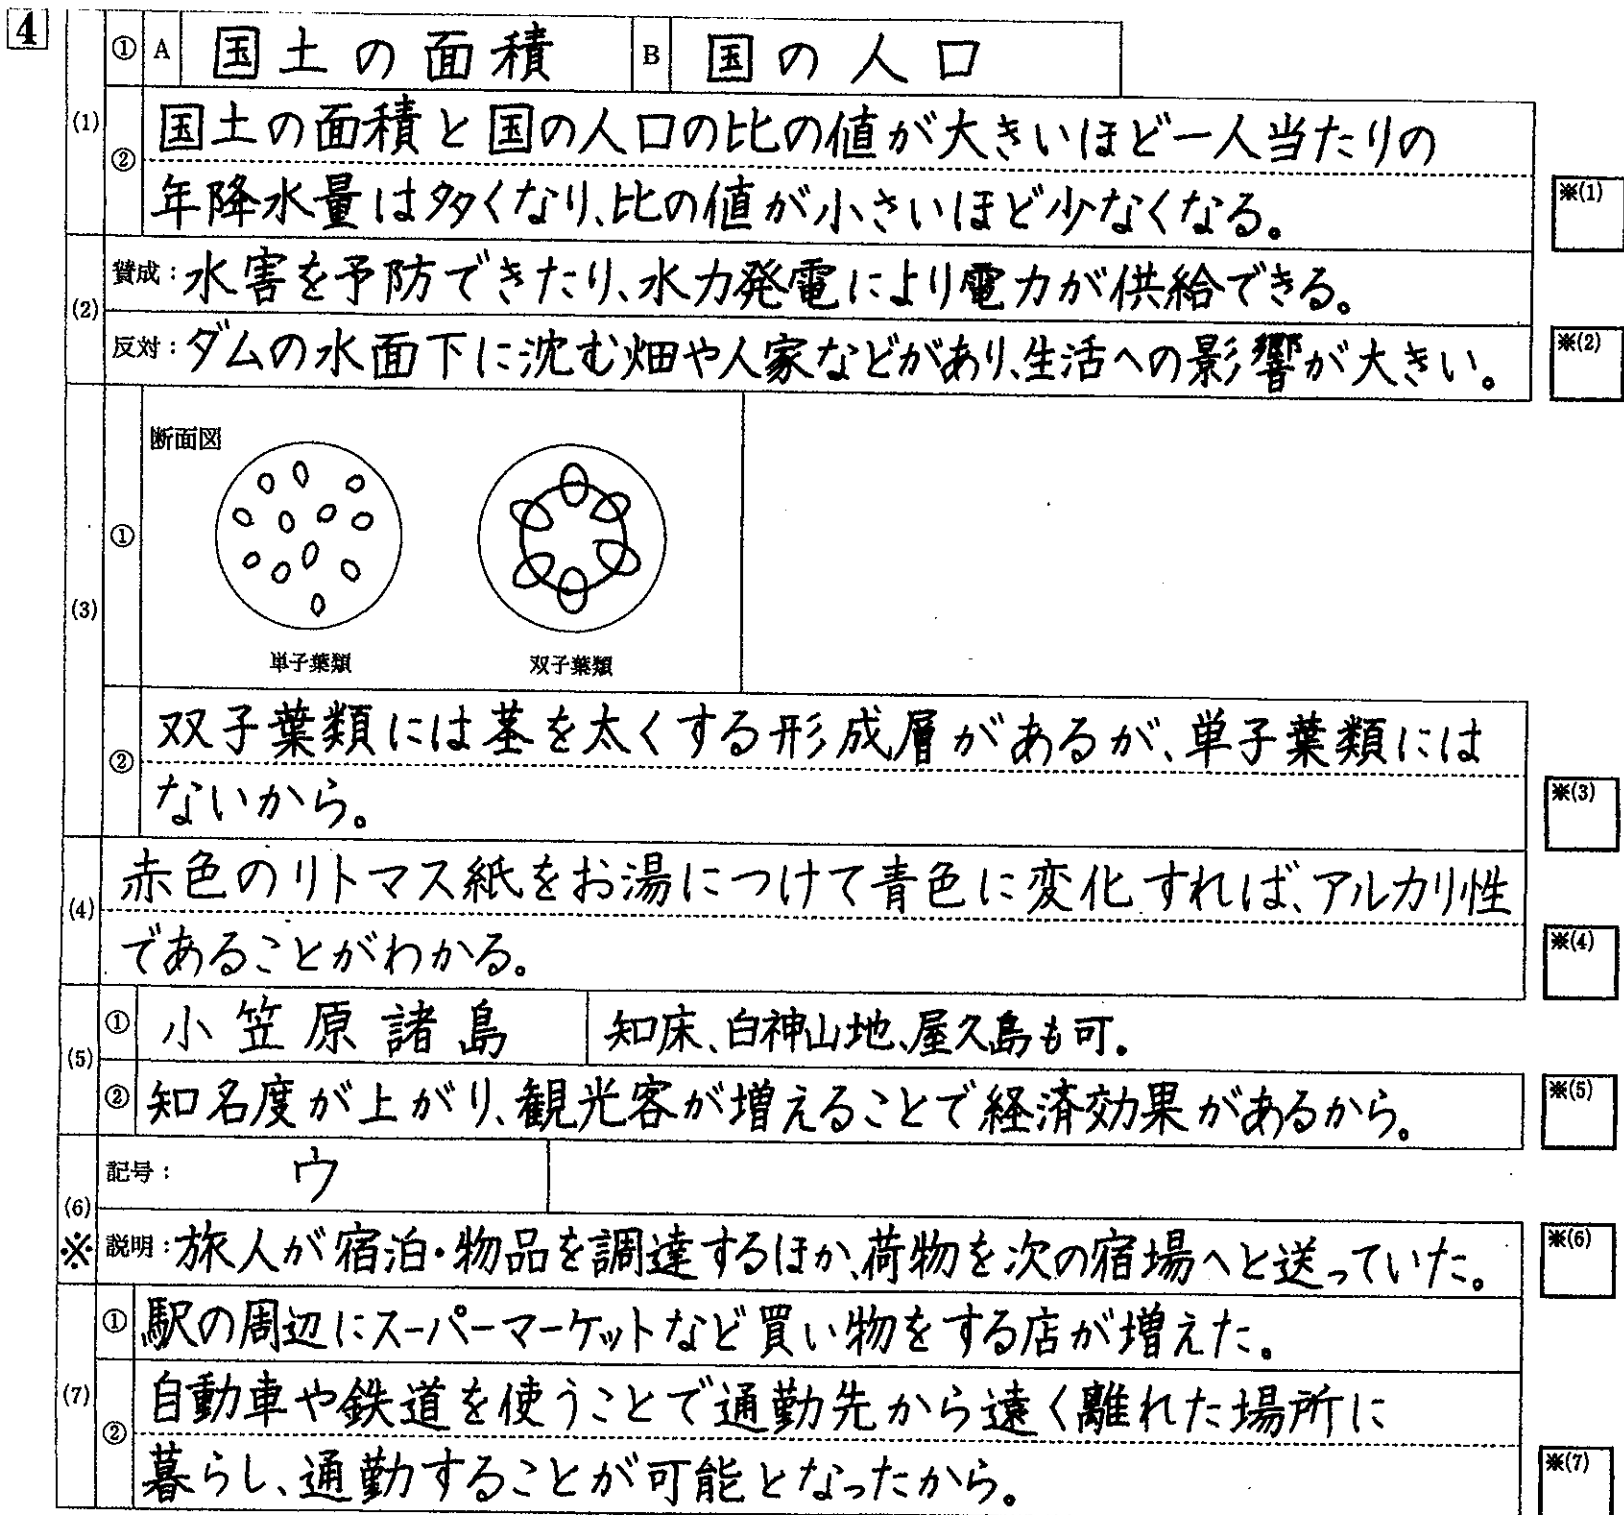 4
(1) ① A 国土の面積 B 国の人口
② 国土の面積と国の人口の比の値が大きいほど一人当たりの
年降水量は多くなり、比の値が小さいほど少なくなる。
※(1)
(2) 賛成：水害を予防できたり、水力発電により電力が供給できる。
反対：ダムの水面下に沈む畑や人家などがあり、生活への影響が大きい。
※(2)
(3) ① 断面図
単子葉類 双子葉類
② 双子葉類には茎を太くする形成層があるが、単子葉類には
ないから。
※(3)
(4) 赤色のリトマス紙をお湯につけて青色に変化すれば、アルカリ性
であることがわかる。
※(4)
(5) ① 小笠原諸島 知床、白神山地、屋久島も可。
② 知名度が上がり、観光客が増えることで経済効果があるから。
※(5)
(6) 記号： ウ
※ 説明：旅人が宿泊・物品を調達するほか、荷物を次の宿場へと送っていた。
※(6)
(7) ① 駅の周辺にスーパーマーケットなど買い物をする店が増えた。
② 自動車や鉄道を使うことで通勤先から遠く離れた場所に
暮らし、通勤することが可能となったから。
※(7)